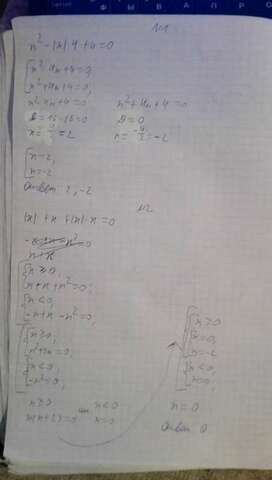 Ф Ы В А П Р О
N1
x² - |x| 4 + 4 = 0
x² - 4x + 4 = 0,
x² + 4x + 4 = 0;
x² - 4x + 4 = 0 x² + 4x + 4 = 0
D = 16 - 16 = 0 D = 0
x = 4/2 = 2 x = -4/2 = -2
x = 2,
x = -2
Ответ: 2, -2
N2
|x| + x + |x| · x = 0
x ≥ 0,
x + x + x² = 0;
x < 0,
-x + x - x² = 0;
x ≥ 0,
x² + 2x = 0;
x < 0,
-x² = 0;
x ≥ 0 или x < 0
x(x + 2) = 0 x = 0
x ≥ 0
x = 0,
x = -2
x < 0,
x = 0;
x = 0
Ответ 0